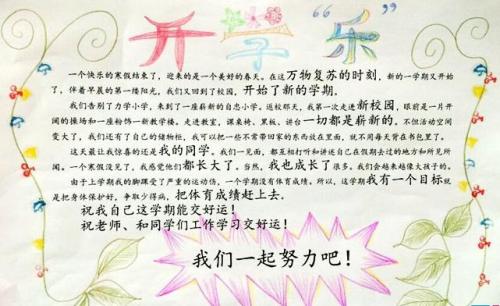 开学“乐”
一个快乐的寒假结束了，迎来的是一个美好的春天。在这万物复苏的时刻，新的一学期又开始
了，伴着早晨的第一缕阳光，我们又回到了校园，开始了新的学期。
我们告别了力学小学，来到了一座崭新的自忠小学。返校那天，我第一次走进新校园，眼前是一片开
阔的操场和一座粉饰一新教学楼。走进教室，课桌椅、黑板、讲台一切都是崭新的，不但活动空间
变大了，我们还有了自己的储物柜，我可以把一些不常带回家的东西放在里面，就不用每天背在书包里了。
这天最让我惊喜的还是我的同学。我们一见面，都互相打听和讲述自己在假期去过的地方和所见所
闻。一个寒假没见了，我感觉他们都长大了，当然，我也成长了很多，我们会越来越像大孩子的。
由于上学期我的脚踝受了严重的运动伤，一个学期没有体育成绩。所以，这学期我有一个目标就
是把身体保护好，争取少得病，把体育成绩赶上去。
祝我自己这学期能交好运！
祝老师、和同学们工作学习交好运！
我们一起努力吧！